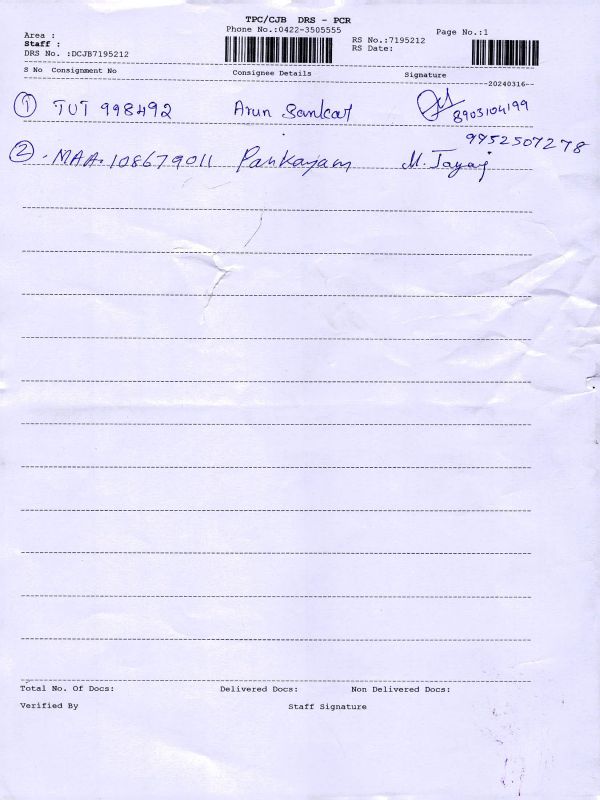 TPC/CJB DRS - PCR
Phone No.:0422-3505555
Page No.:1
Area :
Staff :
DRS No. :DCJB7195212
RS No.:7195212
RS Date:
S No Consignment No Consignee Details Signature
20240316
1 TUT 998492 Arun Sankar 8903104199
9952507278
2 MAA 108679011 Pankajam M. Jayaraj
Total No. Of Docs: Delivered Docs: Non Delivered Docs:
Verified By Staff Signature